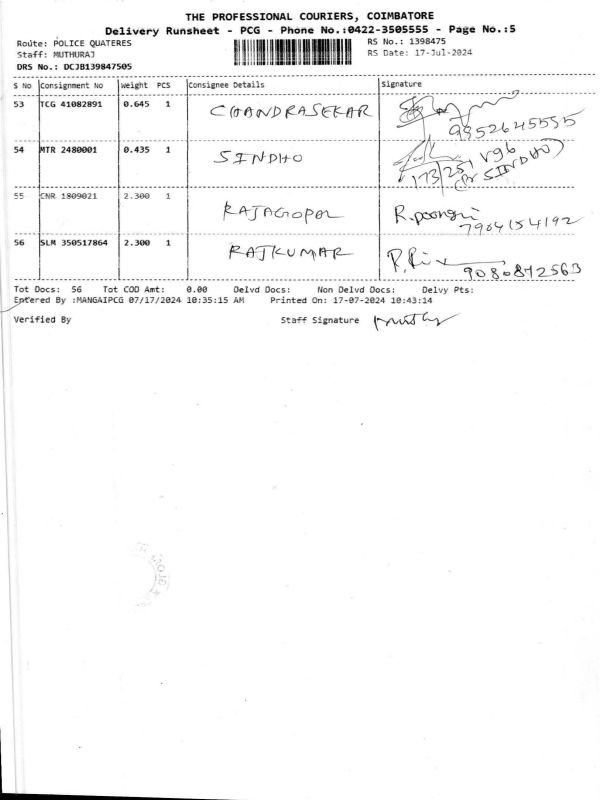 THE PROFESSIONAL COURIERS, COIMBATORE
Delivery Runsheet - PCG - Phone No.:0422-3505555 - Page No.:5
Route: POLICE QUATERES RS No.: 1398475
Staff: MUTHURAJ RS Date: 17-Jul-2024
DRS No.: DCJB139847505
S No Consignment No Weight PCS Consignee Details Signature
53 TCG 41082891 0.645 1 CHANDRASEKAR
9952645555
54 MTR 2480001 0.435 1 SINDHO
173/251 V96
(Pr SINDHO)
55 CNR 1809021 2.300 1 RAJAGOPOL R.poongni
7904154192
56 SLM 350517864 2.300 1 RAJKUMAR
9080872563
Tot Docs: 56 Tot COD Amt: 0.00 Delvd Docs: Non Delvd Docs: Delvy Pts:
Entered By :MANGAIPCG 07/17/2024 10:35:15 AM Printed On: 17-07-2024 10:43:14
Verified By Staff Signature